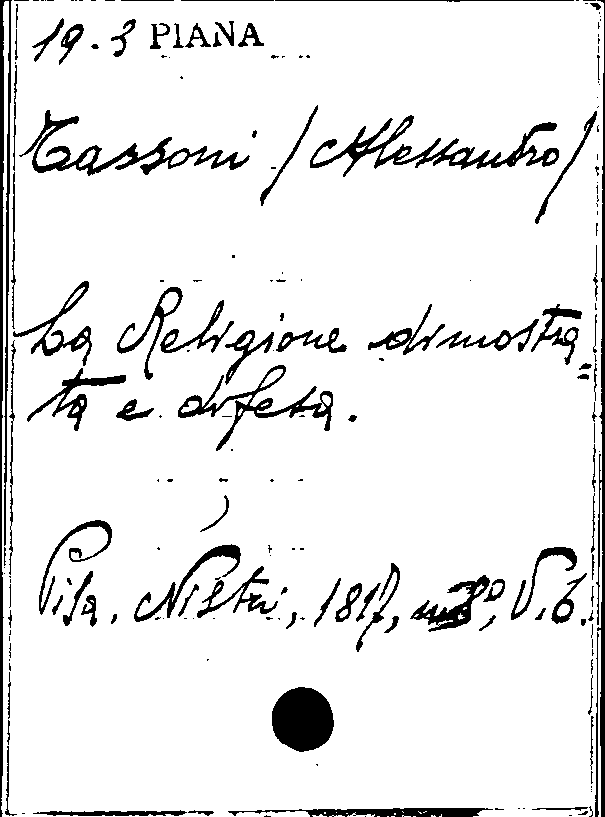 19.3 PIANA
Tassoni /Alessandro/
La Religione dimostra=
ta e difesa.
Pisa. Nistri, 1817, in 8°, V. 6.